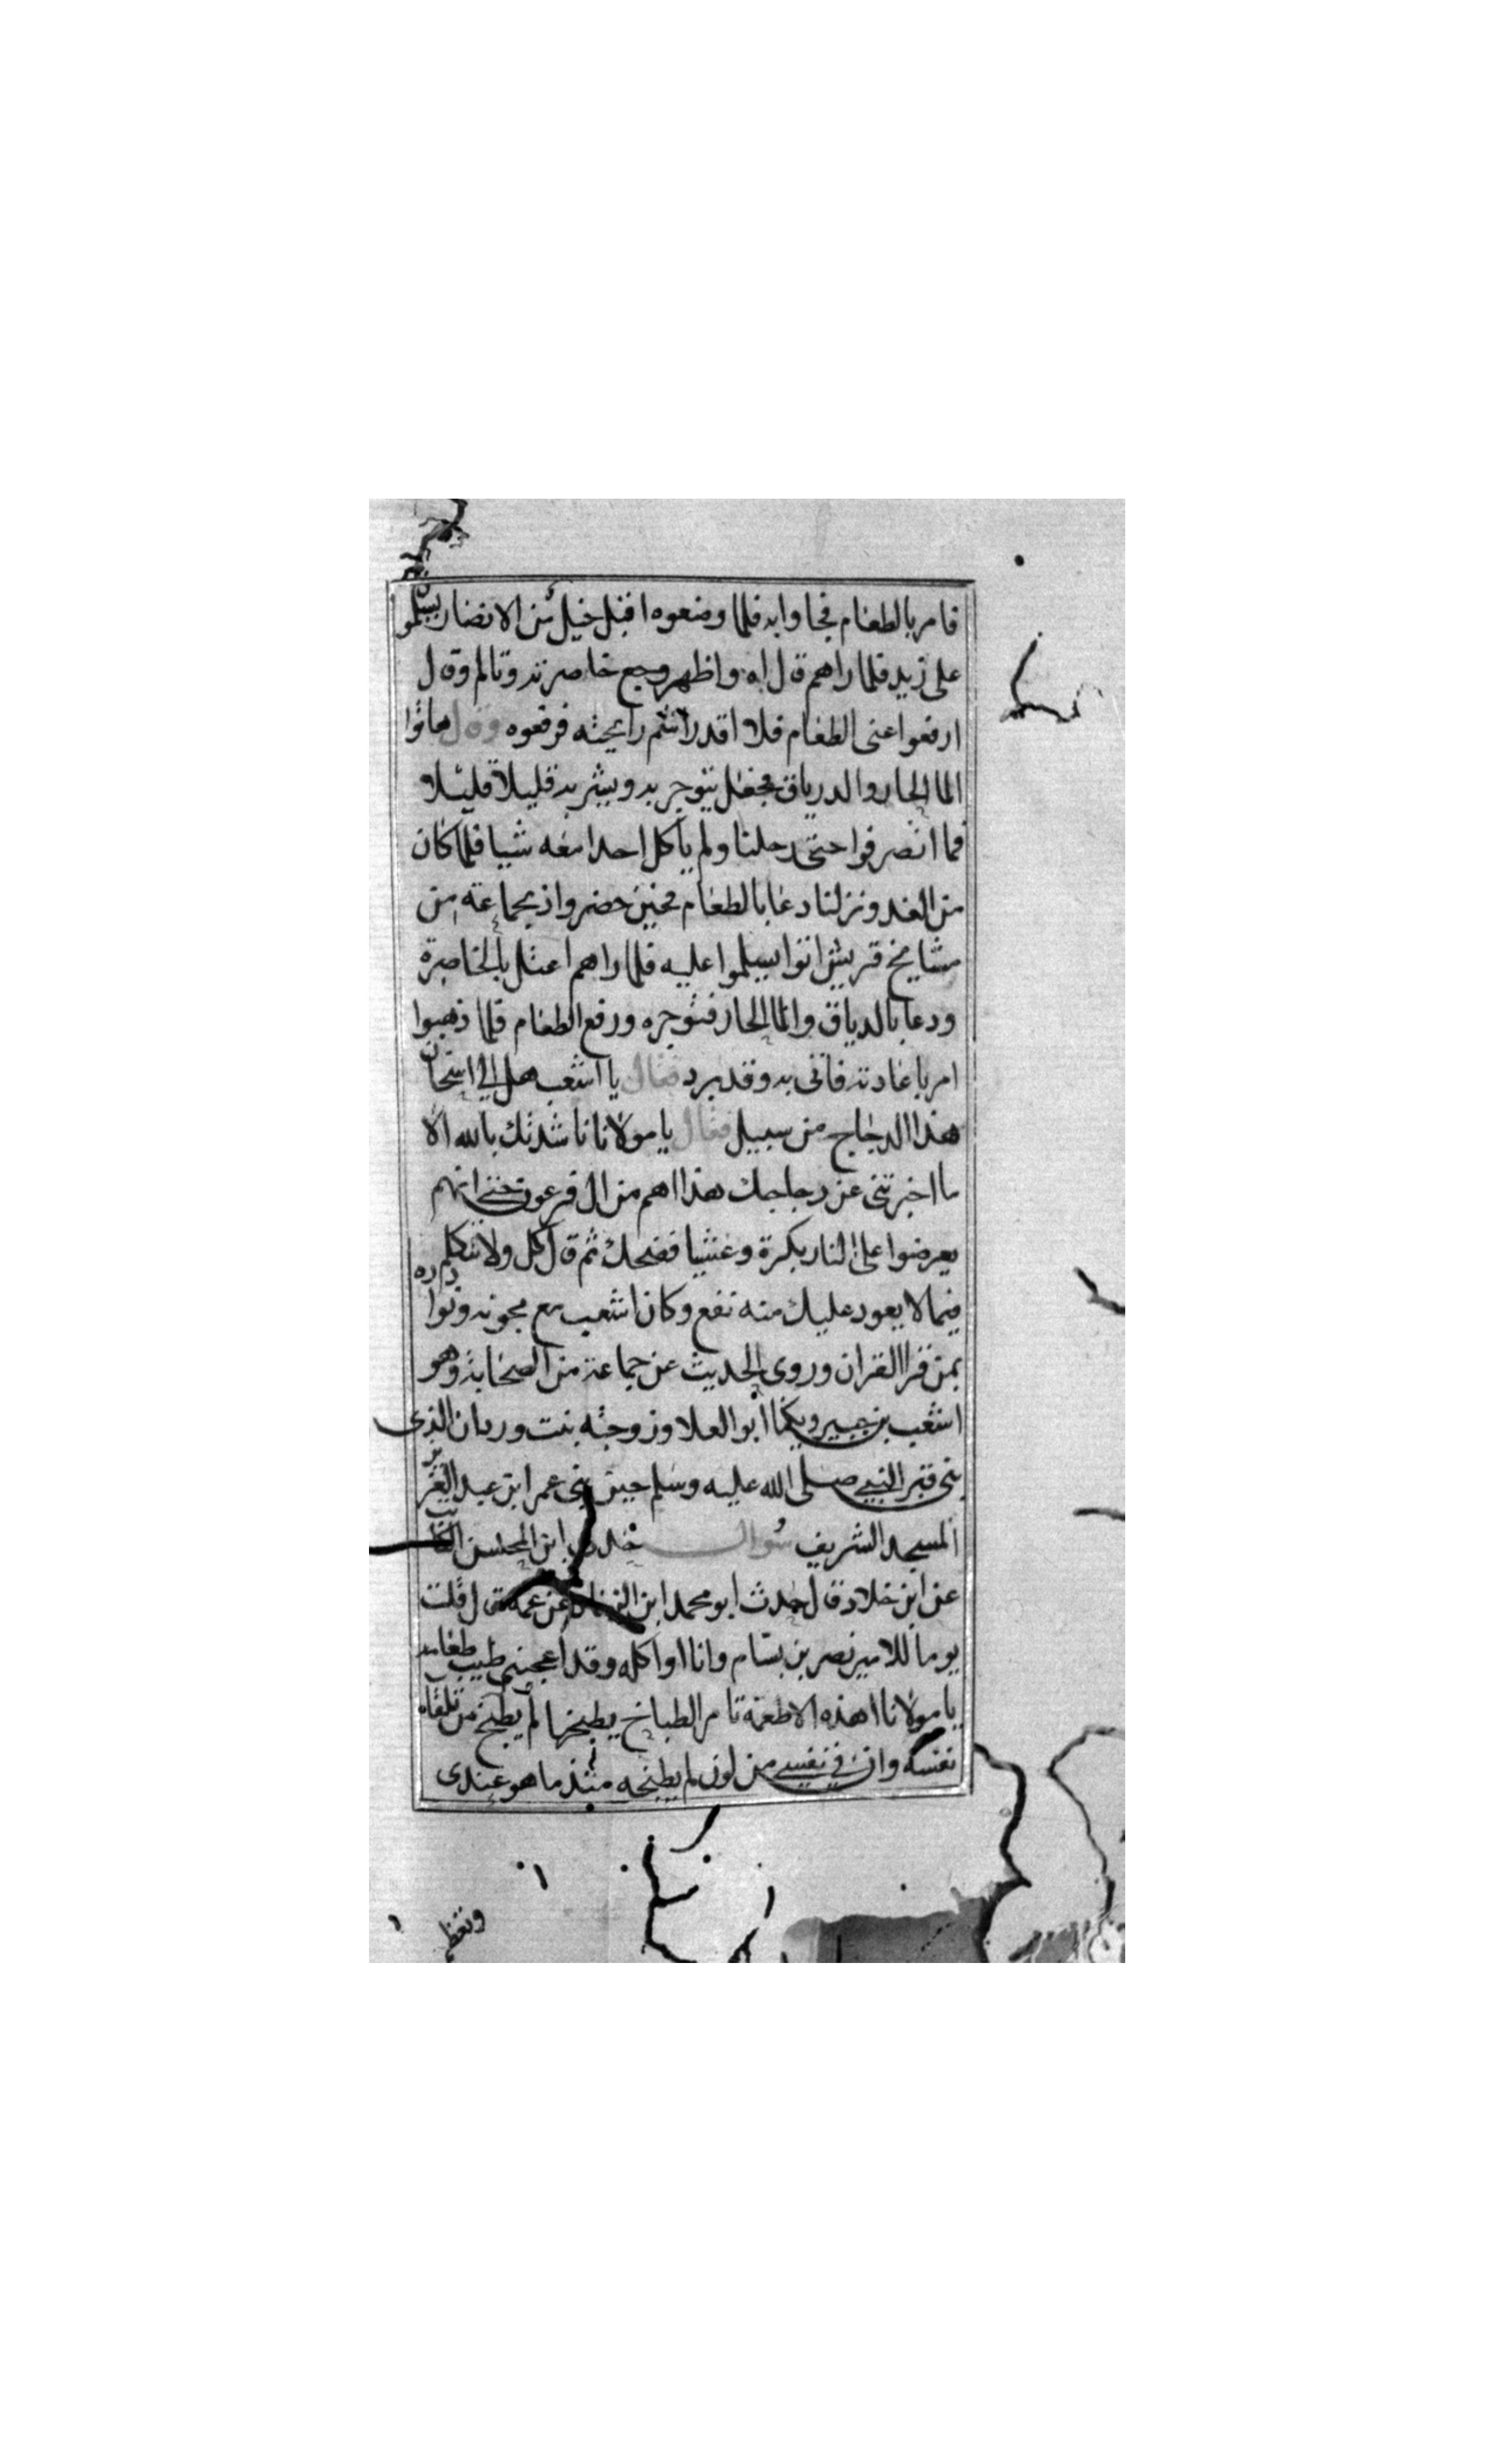 فامر بالطعام فجاوا به فلما وضعوه اقبل خيل من الانصار يسلموا
على زيد فلما راهم قال اه واظهر وجع خاصرته وتالم وقال
ارفعوا عنى الطعام فلا اقدر اشم رايحته فرفعوه وقال هاتوا
الما الحار والدرياق فجعل يتوجر به ويشربه قليلا قليلا
فما انصرفوا حتى رحلنا ولم ياكل احدا معه شيا فلما كان
من الغد ونزلنا دعا بالطعام فحين حضر واذ بجماعة من
مشايخ قريش اتوا يسلموا عليه فلما راهم اعتل بالخاصرة
ودعا بالدياق والما الحار فتوجره ورفع الطعام فلما ذهبوا
امر باعادته فاتى به وقد برد فقال يا اشعب هل الي اسخان
هذا الدجاج من سبيل فقال يا مولانا ناشدتك بالله الا
ما اخبرتنى عن دجاجك هذا اهم من ال فرعون حتي انهم
يعرضوا على النار بكرة وعشيا فضحك ثم قال كل ولا تتكلم
فيما لا يعود عليك منه نفع وكان اشعب مع مجونه ونوادره
ممن قرا القران وروى الحديث عن جماعة من الصحابة وهو
اشعب بن جبير ويكنا ابو العلا وزوجته بنت وردان الذى
بنى قبر النبي صلى الله عليه وسلم حين بنى عمر ابن عبد العزيز
المسجد الشريف سوال ابن المحسن الكاتب
عن ابن خلاد قال حدث ابو محمد ابن عن عمه قال قلت
يوما للامير نصر بن بسام وانا اواكله وقد اعجبنى طيب طعامه
يا مولانا اهذه الاطعمة تامر الطباخ يطبخها ام يطبخ من تلقاه
نفسه وان في نفسي من لون لم يطبخه مثذ ما هو عندى